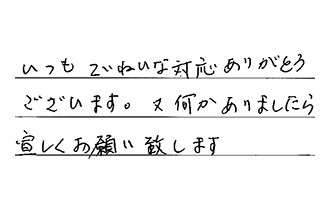 いつもていねいな対応ありがとう
ございます。又何かありましたら
宜しくお願い致します